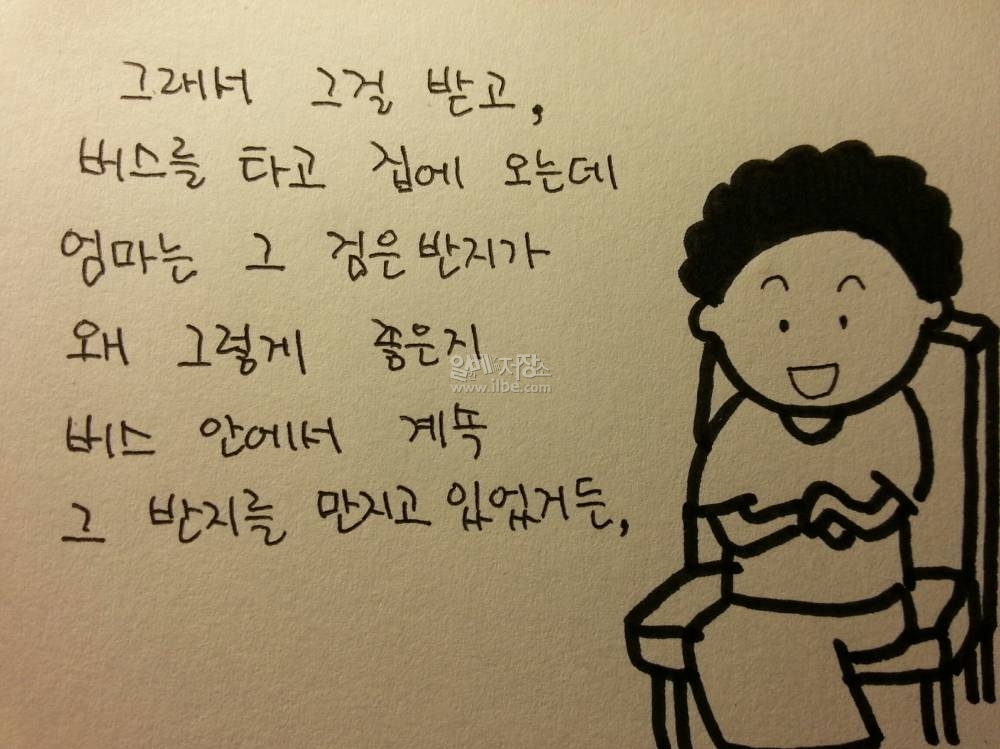 그래서 그걸 받고,
버스를 타고 집에 오는데
엄마는 그 검은 반지가
왜 그렇게 좋은지
일베저장소
www.ilbe.com
버스 안에서 계속
그 반지를 만지고 있었거든,